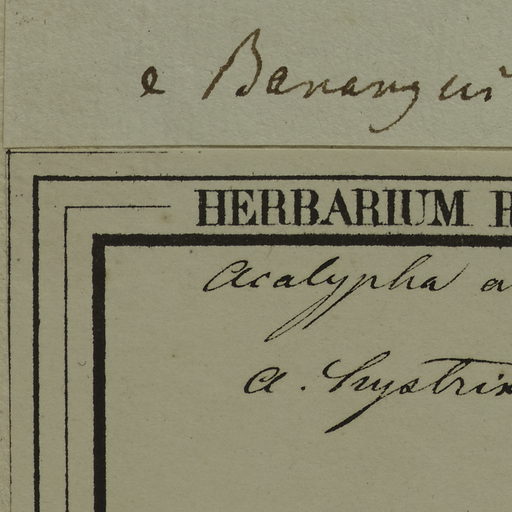 e Banangui
HERBARIUM
Acalypha
a. hystrix